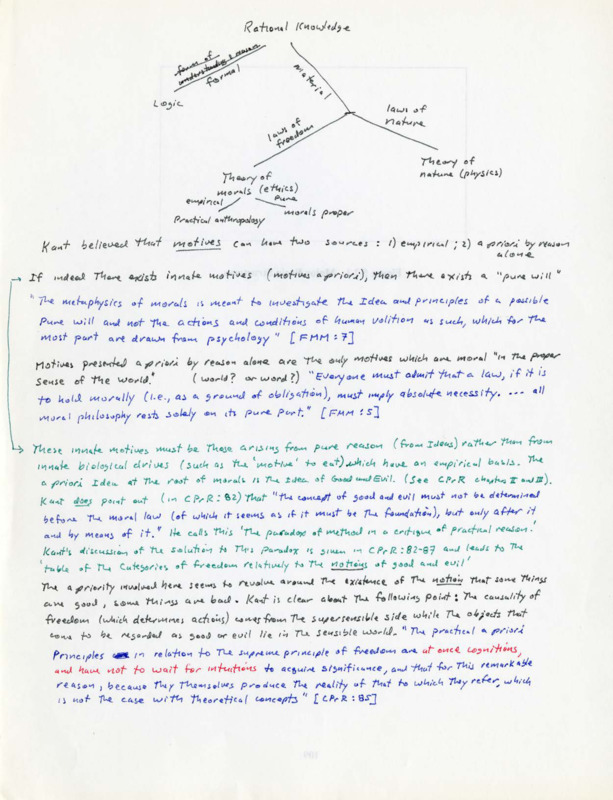 Rational Knowledge
forms of
understanding & reason
formal
material
Logic
laws of
freedom
laws of
nature
Theory of
morals (ethics)
Theory of
nature (physics)
empirical
pure
Practical anthropology
morals proper
Kant believed that motives can have two sources: 1) empirical; 2) a priori by reason
alone
If indeed There exists innate motives (motives a priori), then there exists a "pure will"
"The metaphysics of morals is meant to investigate the Idea and principles of a possible
Pure will and not the actions and conditions of human volition as such, which for the
most part are drawn from psychology" [FMM:7]
Motives presented a priori by reason alone are the only motives which are moral "in the proper
sense of the world." (world? or word?) "Everyone must admit that a law, if it is
to hold morally (i.e., as a ground of obligation), must imply absolute necessity. ... all
moral philosophy rests solely on its pure part." [FMM:5]
These innate motives must be Those arising from pure reason (from Ideas) rather than from
innate biological drives (such as the 'motive' to eat) which have an empirical basis. The
a priori Idea at the root of morals is the Idea of Good and Evil. (See CPrR chapters II and III).
Kant does point out (in CPrR:82) that "the concept of good and evil must not be determined
before the moral law (of which it seems as if it must be the foundation), but only after it
and by means of it." He calls this 'The paradox of method in a critique of practical reason.'
Kant's discussion of the solution to this paradox is given in CPrR:82-87 and leads to the
'table of the Categories of freedom relatively to the notions of good and evil'
The a priority involved here seems to revolve around the existence of the notion that some things
are good, some things are bad. Kant is clear about the following point: The causality of
freedom (which determines actions) comes from the supersensible side while the objects that
come to be regarded as good or evil lie in the sensible world. "The practical a priori
Principles in relation to the supreme principle of freedom are at once cognitions,
and have not to wait for intuitions to acquire significance, and that for this remarkable
reason, because they themselves produce the reality of that to which they refer, which
is not the case with theoretical concepts" [CPrR:85]